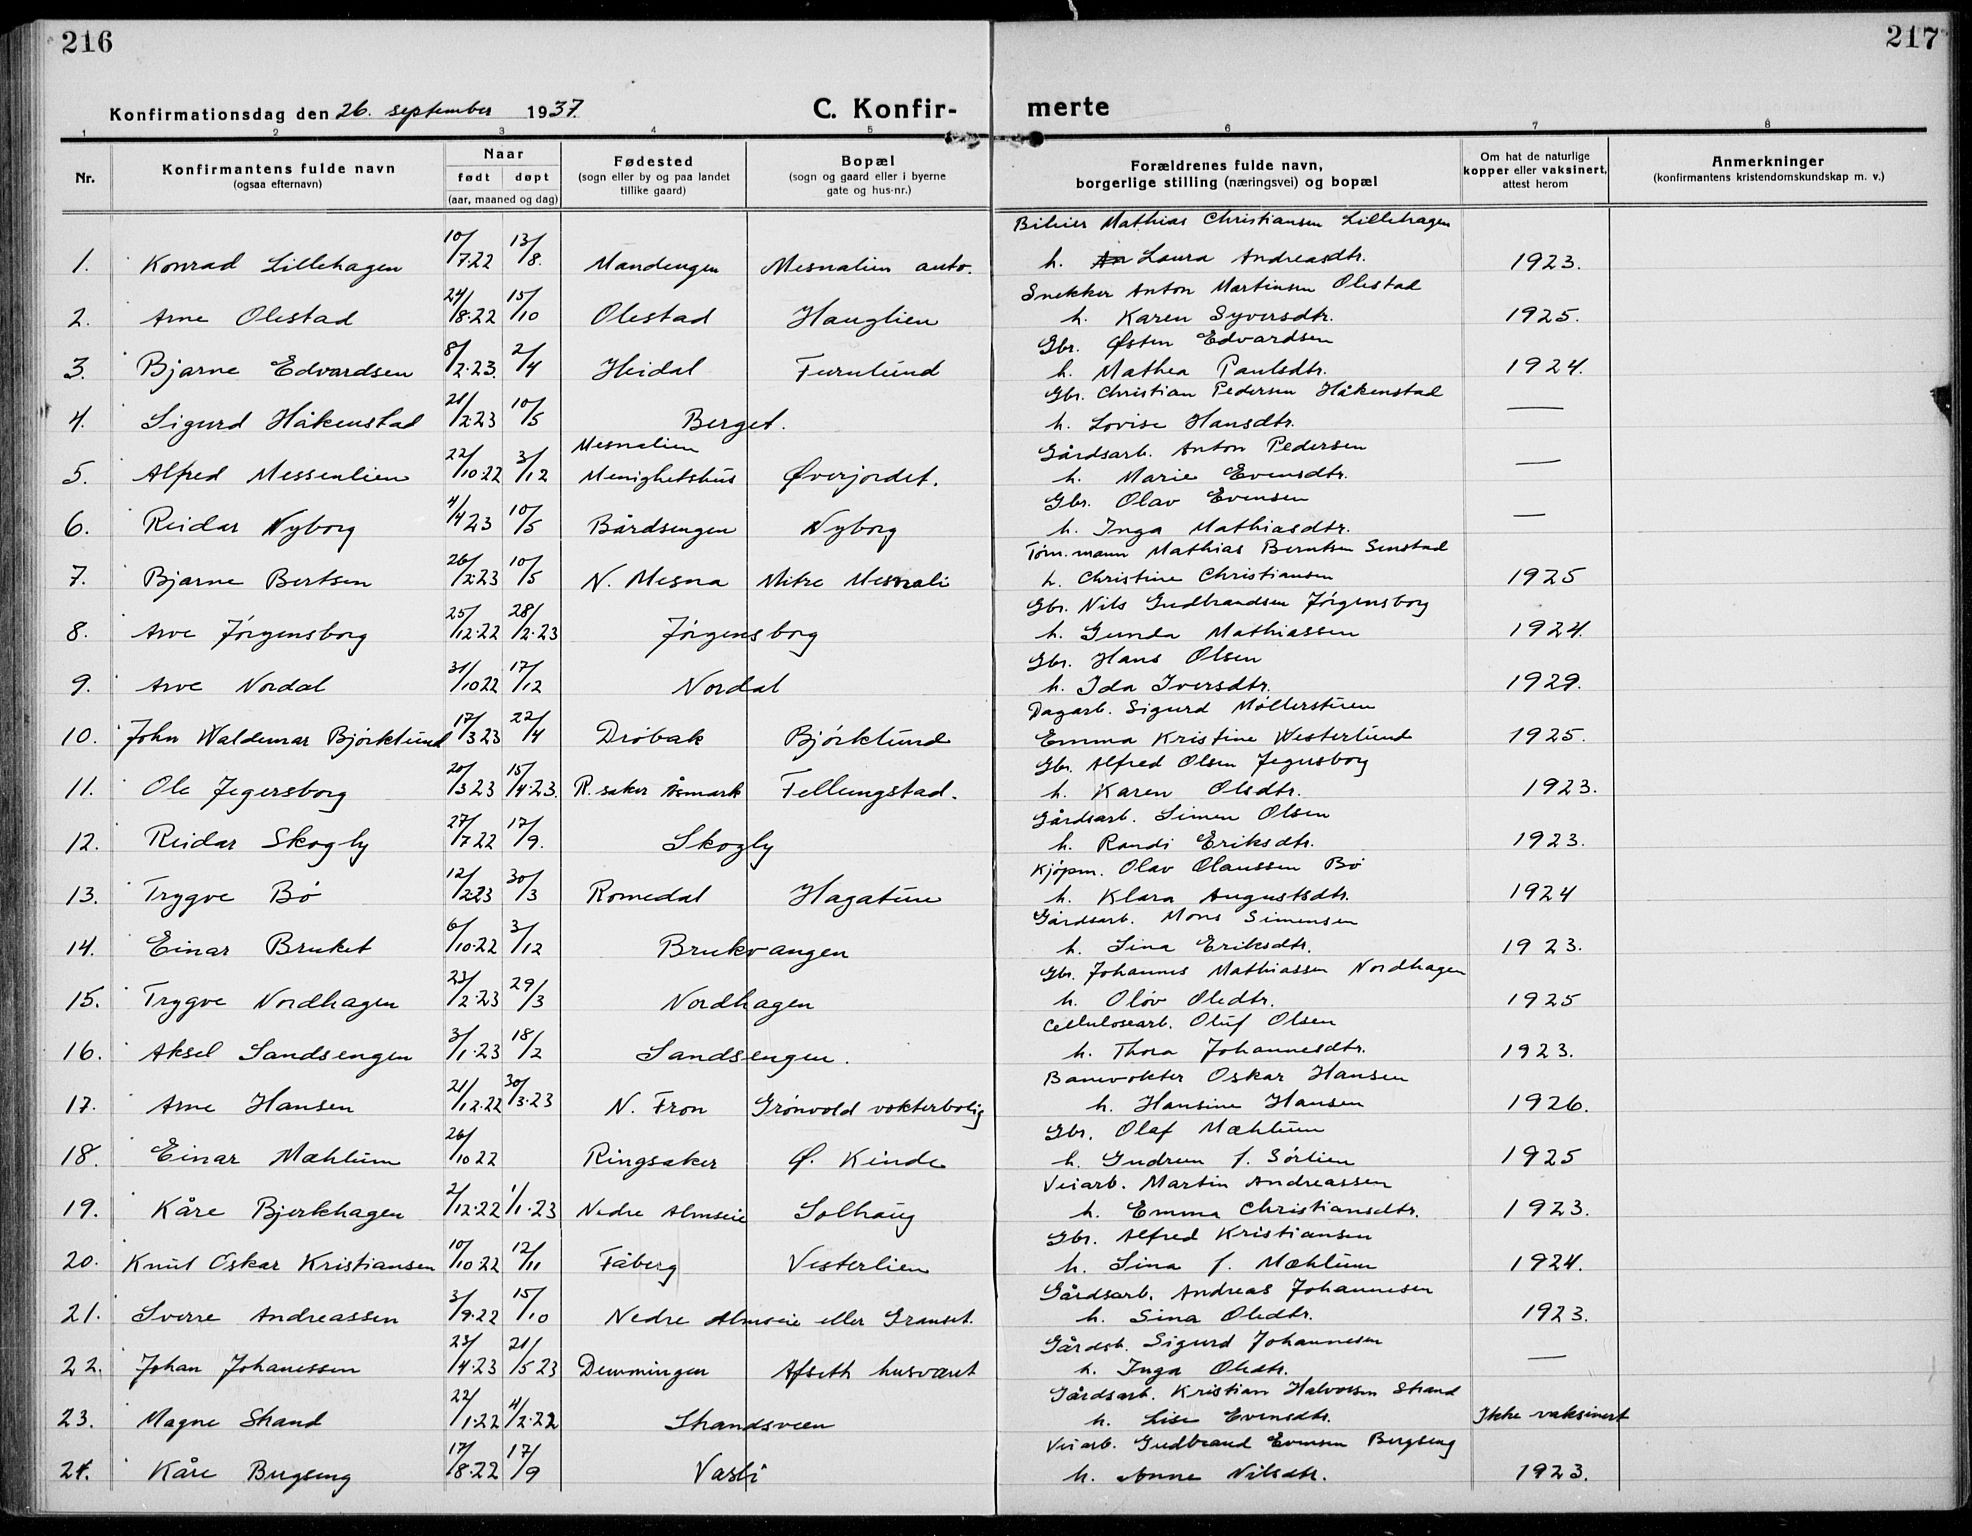 216
217
Konfirmationsdag den 26. september 1937.
C. Konfir-
merte
1 2 3 4 5 6 7 8
Nr.
Konfirmantens fulde navn
(ogsaa efternavn)
Naar
født døpt
(aar, maaned og dag)
Fødested
(sogn eller by og paa landet
tillike gaard)
Bopæl
(sogn og gaard eller i byerne
gate og hus-nr.)
Forældrenes fulde navn,
borgerlige stilling (næringsvei) og bopæl
Om hat de naturlige
kopper eller vaksinert,
attest herom
Anmerkninger
(konfirmantens kristendomskundskap m. v.)
Bileier Mathias Christiansen Lillehagen
1. Konrad Lillehagen 10/7.22 13/8. Mandengen Mesnalien auto. h. Laura Andreasdtr. 1923.
Snekker Anton Martinsen Olestad
2. Arne Olestad 24/8.22 15/10 Olestad Hauglien h. Karen Syversdtr. 1925.
Gbr. Østen Edvardsen
3. Bjarne Edvardsen 8/2.23. 2/4 Heidal Furulund h. Mathea Paulsdtr. 1924.
Gbr. Christian Pedersen Håkenstad
4. Sigurd Håkenstad 21/2.23 10/5 Berget. h. Lovise Hansdtr. —
Mesnalien Gårdsarb. Anton Pedersen
5. Alfred Messenlien 22/10.22 3/12 Menighetshus Øverjordet. h. Marie Evensdtr. —
Gbr. Olav Evensen
6. Reidar Nyborg 4/4 23 10/5 Bårdsengen Nyborg h. Inga Mathiasdtr. —
Tøm.mann Mathias Berntsen Senstad
7. Bjarne Bertsen 26/2.23 10/5 N. Mesna Mitre Mesnali h. Christine Christiansen 1925
Gbr. Nils Gudbrandsen Jörgensborg
8. Arve Jörgensborg 25/12.22 28/2.23 Jörgensborg h. Gunda Mathiassen 1924.
Gbr. Hans Olsen
9. Arve Nordal 31/10 22 17/12 Nordal h. Ida Iversdtr. 1929.
Dagarb. Sigurd Möllerstuen
10. John Waldemar Björklund 17/3 23 22/4 Dröbak Björklund Emma Kristine Westerlund 1925.
Gbr. Alfred Olsen Jegersborg
11. Ole Jegersborg 20/3 23 15/4.23. R.saker Åsmark Fellungstad. h. Karen Olsdtr. 1923.
Gårdsarb. Simen Olsen
12. Reidar Skogly 27/7 22 17/9. Skogly h. Randi Eriksdtr. 1923.
Kjöpm. Olav Olaussen Bö
13. Trygve Bö 12/2.23 30/3 Romedal Hagatun h. Klara Augustsdtr. 1924
Gårdsarb. Mons Simensen
14. Einar Bruket 6/10.22 3/12 Brukvangen h. Lina Eriksdtr. 1923.
Gbr. Johannes Mathiassen Nordhagen
15. Trygve Nordhagen 23/2.23 29/3 Nordhagen h. Olöv Oledtr. 1925
Cellulosearb. Oluf Olsen
16. Aksel Sandsengen 3/1.23 18/2 Sandsengen. h. Thora Johannesdtr. 1923.
Banevokter Oskar Hansen
17. Arne Hansen 21/12.22 30/3.23 N. Fron Grönvold vokterbolig h. Hansine Hansen 1926.
Gbr. Olaf Mæhlum
18. Einar Mæhlum 26/10 22 Ringsaker Ø. Kinde h. Gudrun f. Sörlien 1925
Veiarb. Martin Andreassen
19. Kåre Bjerkhagen 2/12.22 1/1.23 Nedre Almseie Solhaug h. Emma Christiansdtr. 1923.
Gbr. Alfred Kristiansen
20. Knut Oskar Kristiansen 10/10.22 12/11 Fåberg Vesterlien h. Lina f. Mæhlum 1924.
Gårdsarb. Andreas Johannesen
21. Sverre Andreassen 3/9.22 15/10 Nedre Almseie eller Granset. h. Sina Oledtr. 1923.
Gårdsb. Sigurd Johannesen
22. Johan Johanessen 23/4.23 21/5 23 Demmingen Afseth husværet h. Inga Oledtr. —
Gårdsarb. Kristian Halvorsen Strand
23. Magne Strand 22/1.22 4/2.22 Strandsveen h. Lise Evensdtr. Ikke vaksinert
Veiarb. Gudbrand Evensen Bergseng
24. Kåre Bergseng 17/8.22 17/9 Vasli h. Anne Nilsdtr. 1923.